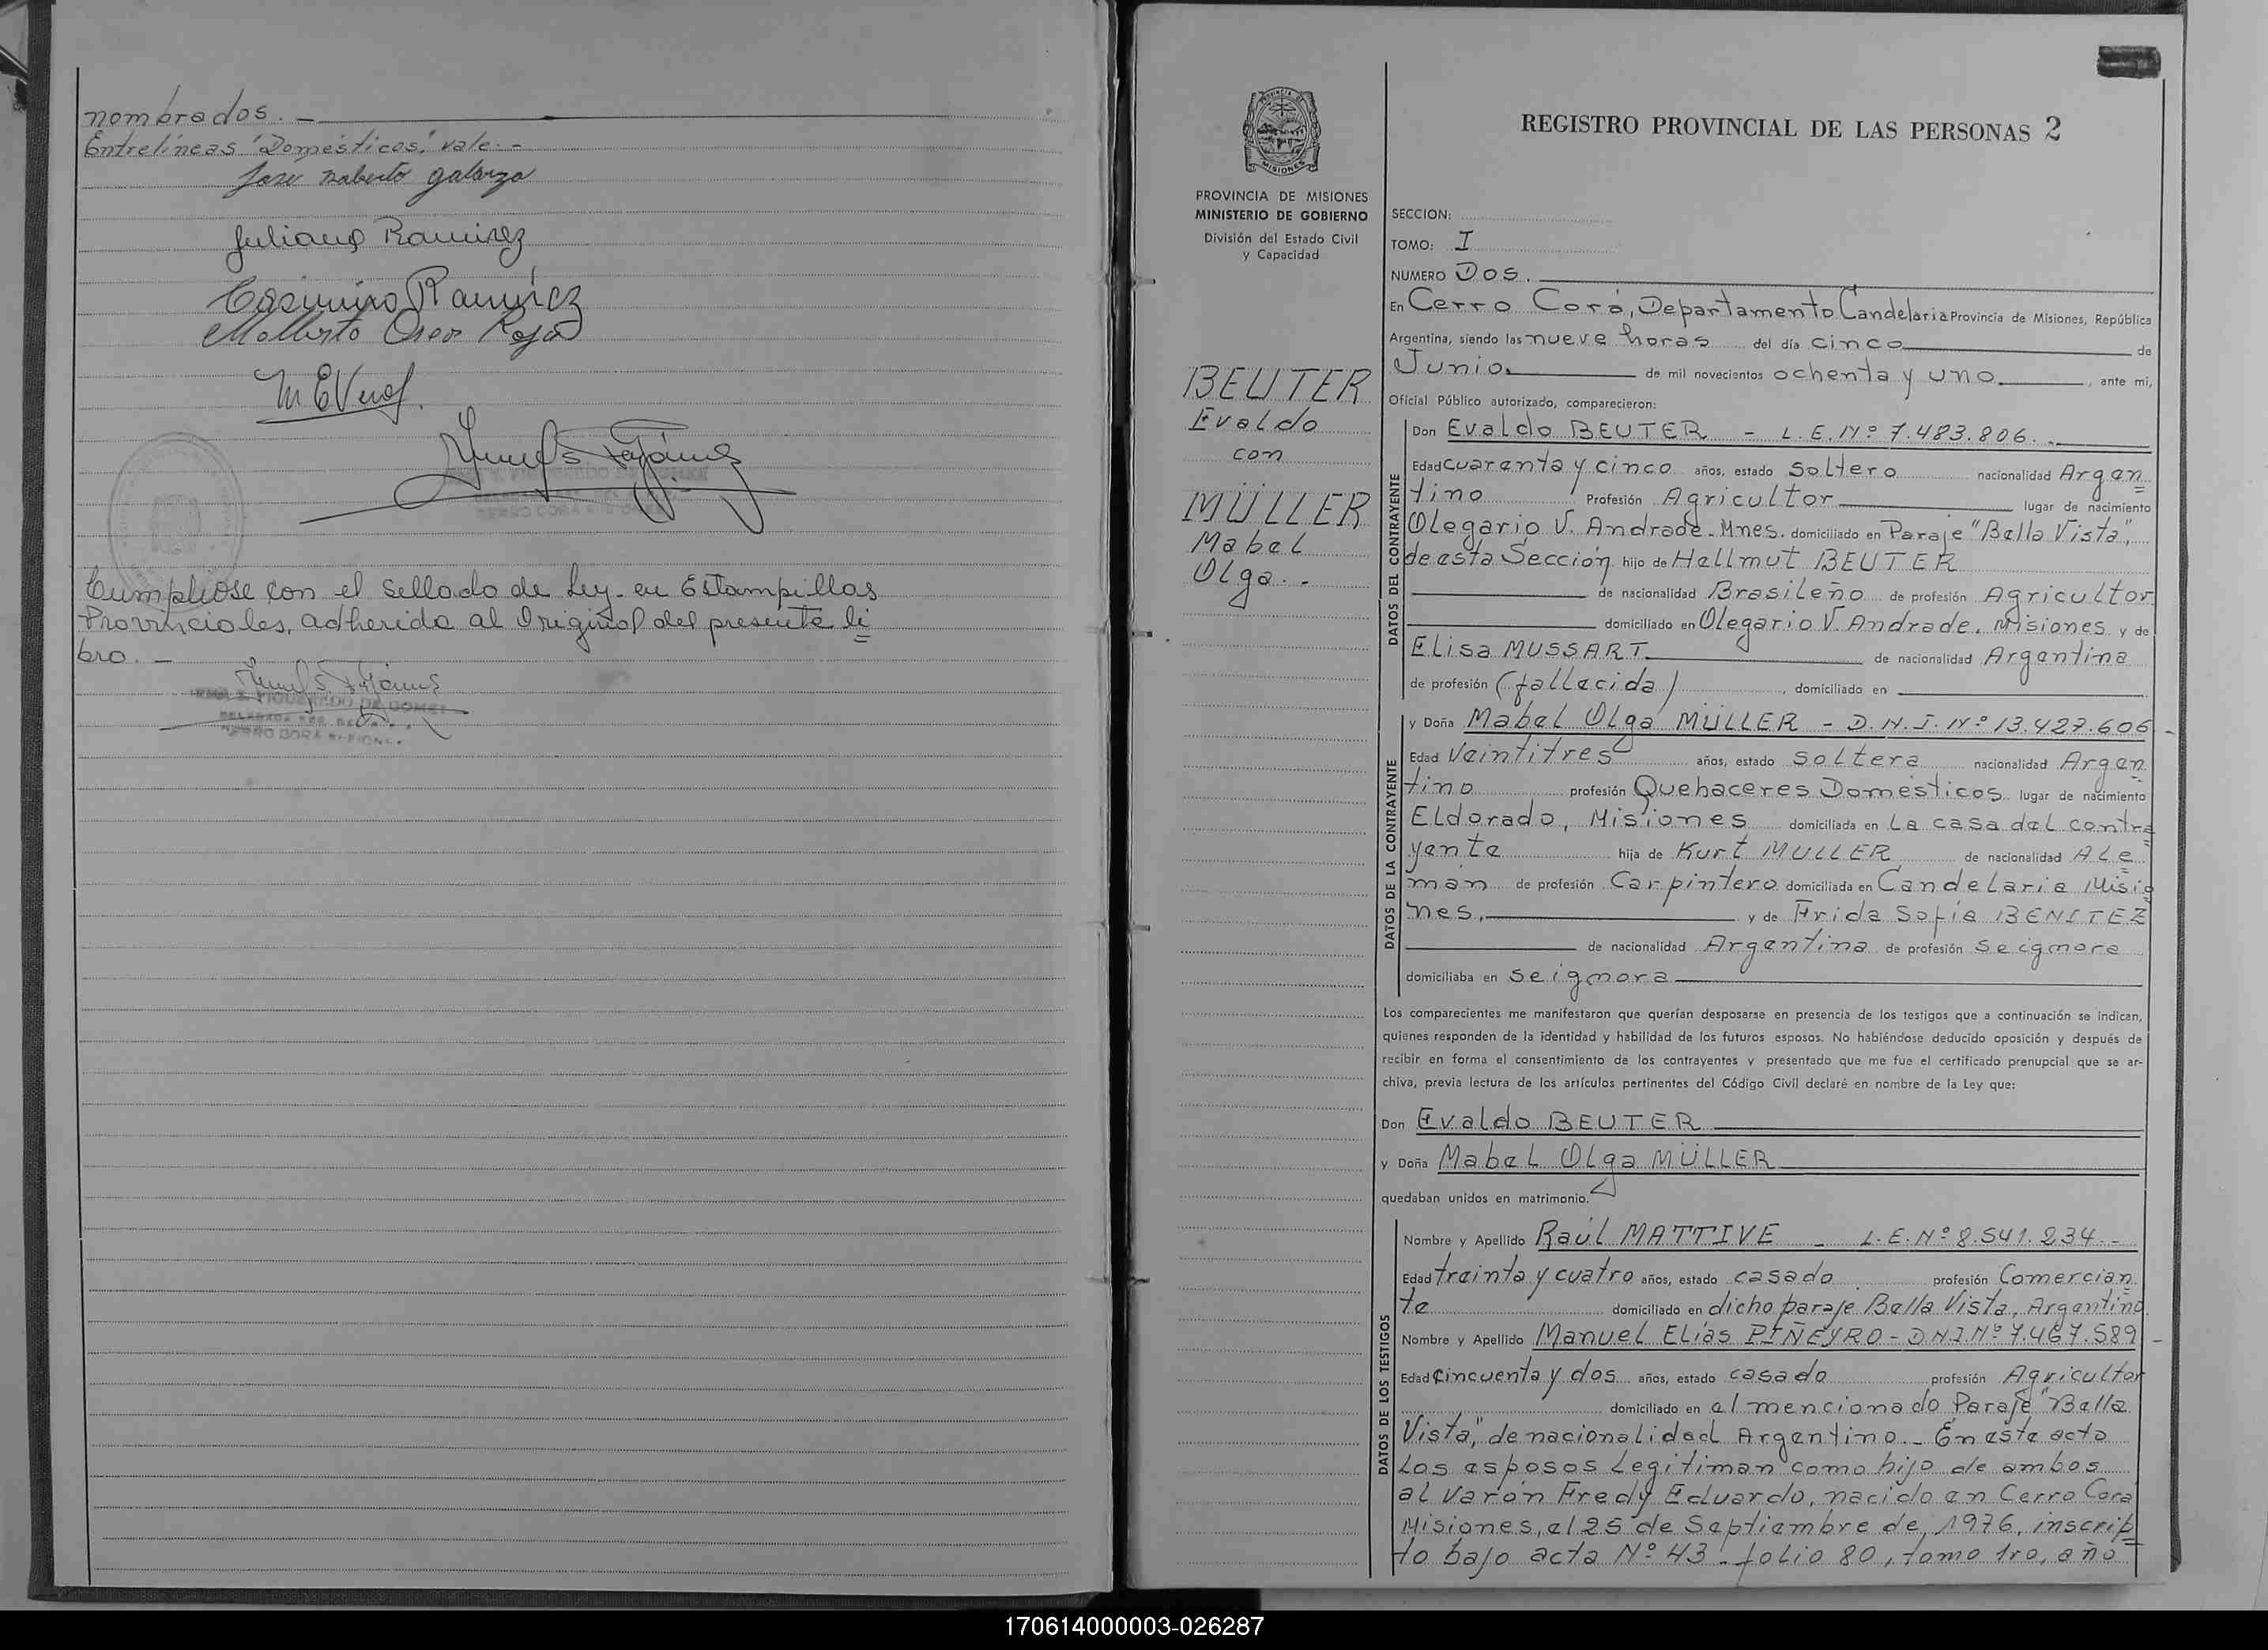 nombrados. -
Entrelíneas "Domésticos," vale. -
Jose galarza
Juliana Ramirez
Casimiro Ramirez
Cumpliose con el Sellado de Ley en Estampillas
Provinciales, adherida al Original del presente li
bro. -
PROVINCIA DE MISIONES
MINISTERIO DE GOBIERNO
División del Estado Civil
y Capacidad
BEUTER
Evaldo
con
MÜLLER
Mabel
Olga. -
REGISTRO PROVINCIAL DE LAS PERSONAS 2
SECCION:
TOMO: I
NUMERO DOS.
En Cerro Corá, Departamento Candelaria Provincia de Misiones, República
Argentina, siendo las nueve horas del día cinco de
Junio de mil novecientos ochenta y uno, ante mi,
Oficial Público autorizado, comparecieron:
DATOS DEL CONTRAYENTE
Don Evaldo BEUTER - L.E.Nº 7.483.806. -
Edad cuarenta y cinco años, estado soltero nacionalidad Argen
tino Profesión Agricultor lugar de nacimiento
Olegario V. Andrade. Mnes. domiciliado en Paraje "Bella Vista",
de esta Sección hijo de Hellmut BEUTER
de nacionalidad Brasileño de profesión Agricultor
domiciliado en Olegario V. Andrade. Misiones y de
Elisa MUSSART de nacionalidad Argentina
de profesión (fallecida), domiciliada en
DATOS DE LA CONTRAYENTE
y Doña Mabel Olga MÜLLER - D.N.I. Nº 13.427.606 -
Edad Veintitres años, estado soltera nacionalidad Argen
tino profesión Quehaceres Domésticos lugar de nacimiento
Eldorado, Misiones domiciliada en la casa del contra
yente hija de Kurt MULLER de nacionalidad Ale
man de profesión Carpintero domiciliada en Candelaria Misio
nes, y de Frida Sofía BENITEZ
de nacionalidad Argentina de profesión se ignora
domiciliaba en se ignora
Los comparecientes me manifestaron que querían desposarse en presencia de los testigos que a continuación se indican,
quienes responden de la identidad y habilidad de los futuros esposos. No habiéndose deducido oposición y después de
recibir en forma el consentimiento de los contrayentes y presentado que me fue el certificado prenupcial que se ar-
chiva, previa lectura de los artículos pertinentes del Código Civil declaré en nombre de la Ley que:
Don Evaldo BEUTER
y Doña Mabel Olga MÜLLER
quedaban unidos en matrimonio.
DATOS DE LOS TESTIGOS
Nombre y Apellido Raúl MATTIVE - L.E.Nº 8.541.234. -
Edad treinta y cuatro años, estado casado profesión Comercian
te domiciliado en dicho paraje Bella Vista, Argentino
Nombre y Apellido Manuel Elías PIÑEYRO - DNI.Nº 7.467.589 -
Edad Cincuenta y dos años, estado casado profesión Agricultor
domiciliado en al mencionado Paraje "Bella
Vista," de nacionalidad Argentino. - En este acto
los esposos legitiman como hijo de ambos
al varón Fredy Eduardo, nacido en Cerro Corá
Misiones, el 25 de Septiembre de 1976, inscrip
to bajo acta Nº 43 - folio 80, tomo 1ro, año
170614000003-026287